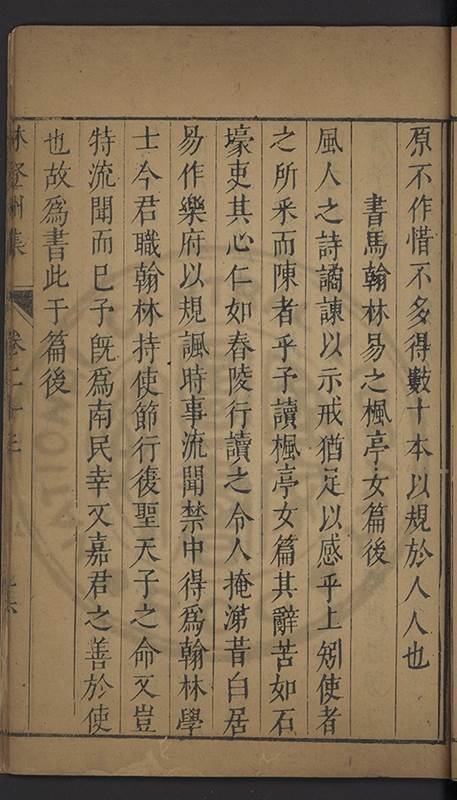 原不作惜不多得數十本以規於人人也
書馬翰林易之楓亭女篇後
風人之詩譎諫以示戒猶足以感乎上矧使者
之所采而陳者乎予讀楓亭女篇其辭苦如石
壕吏其心仁如舂陵行讀之令人掩涕昔白居
易作樂府以規諷時事流聞禁中得爲翰林學
士今君職翰林持使節行復聖天子之命又豈
特流聞而巳予旣爲南民幸又嘉君之善於使
也故爲書此于篇後
林登州集 卷二十三